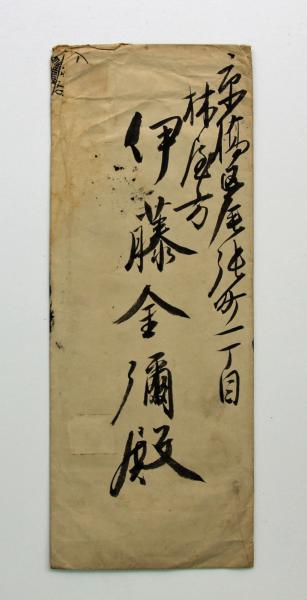 京橋区尾張町一丁目
林屋方
伊藤金彌殿